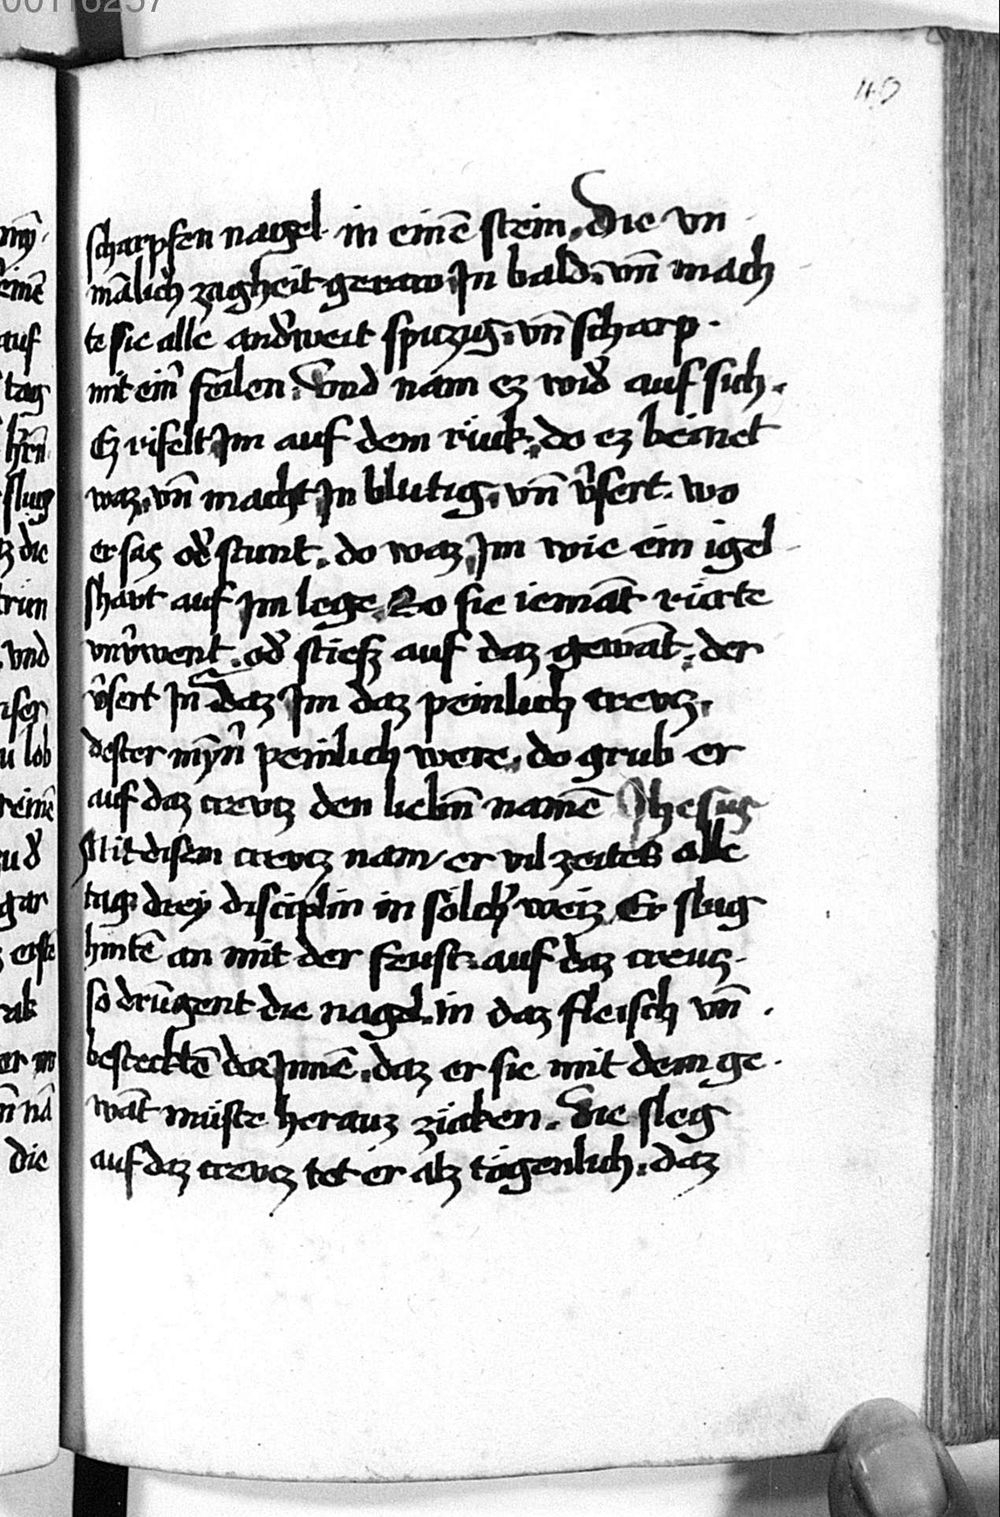 49
scharpfen nagel in eine̅ stein. Die vn
ma̅lich zagheit geraw Jn bald. vn̅ mach
te sie alle andˀweit spitzig. vn̅ scharp.
mit einˀ feilen. Vnd nam ez widˀ auf sich.
Ez rifelt Jm auf dem rükk. do ez beinet
waz. vn̅ macht Jn blutig. vn̅ vˀsert. wo
er sas odˀ stunt. do waz Jm wie ein igel
shavt auf Jm lege. So sie iema̅t rürte
vnvˀwent. odˀ stiesz auf daz gewa̅t. der
vˀsert Jn Daz Jm daz peinlich crevcz.
dester my̅nˀ peinlich were. do grub er
auf daz crevtz den liebn̅ name̅ Jhesus
Mit disem crevcz nam er vil zeites alle
tag drey disciplin in sölchˀ weiz Er slug
hinte̅ an mit der feust. auf daz creucz.
so dru̅gent die nagel. in daz fleisch vn̅.
besteckte̅ dar Jnne̅. daz er sie mit dem ge.
wa̅t müste herauz zücken. Die sleg
auf daz crevcz tet er alz tögenlich. daz